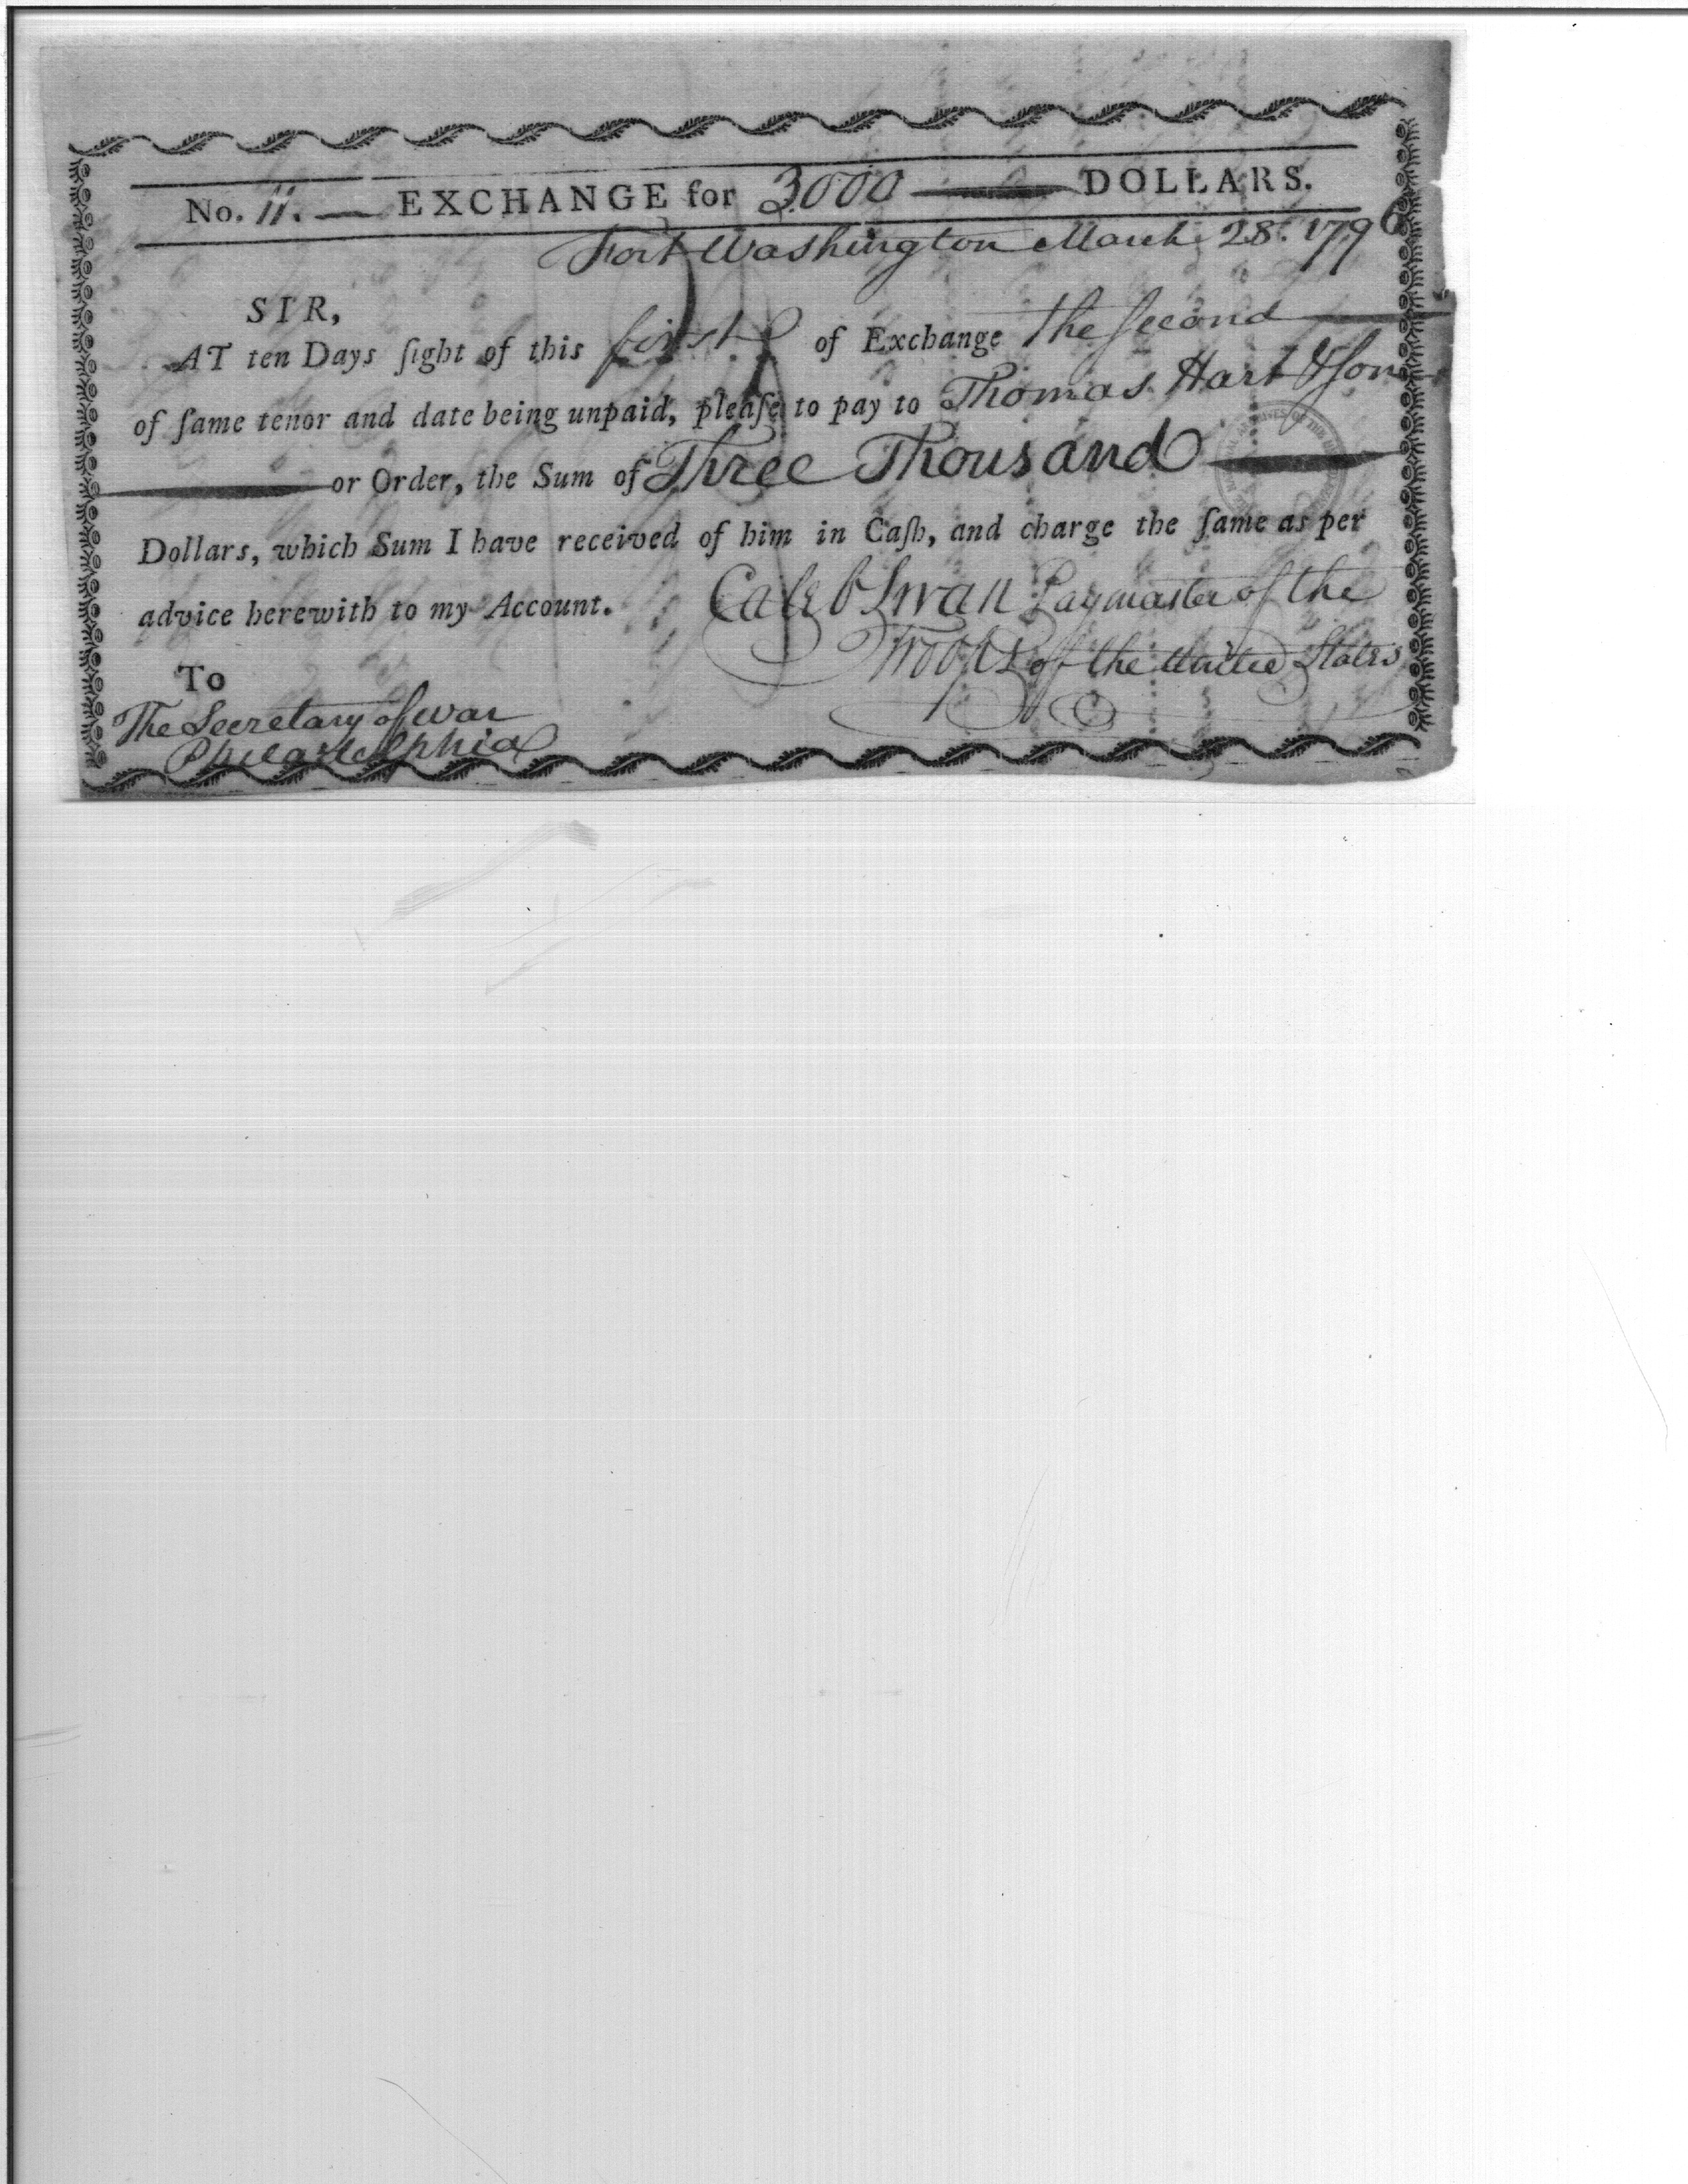 No. 11. — EXCHANGE for 3000 — DOLLARS.
Fort Washington March 28. 1796
SIR,
AT ten Days ſight of this first of Exchange the Second
of ſame tenor and date being unpaid, pleaſe to pay to Thomas Hart & Son
or Order, the Sum of Three Thousand
Dollars, which Sum I have received of him in Caſh, and charge the ſame as per
advice herewith to my Account. Caleb Swan Paymaster of the
Troops of the United States
To
The Secretary of war
Philadelphia